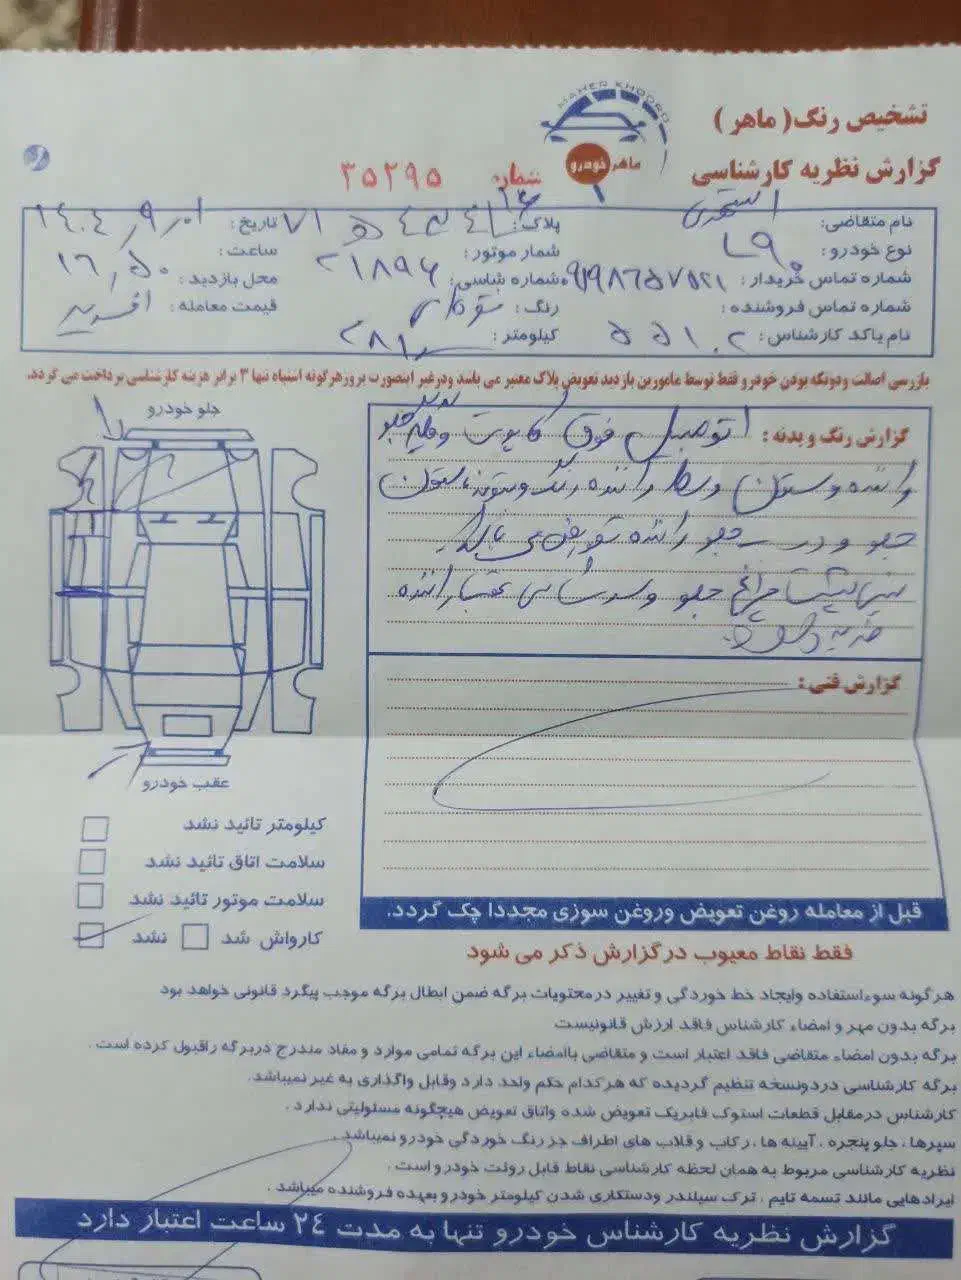 MAHER KHODRO
ماهر خودرو
تشخیص رنگ( ماهر )
گزارش نظریه کارشناسی
شماره ۳۵۲۹۵
نام متقاضی:
پلاک:
تاریخ: ۱۴۰۴/۹/
نوع خودرو:
شمار موتور:
ساعت: ۱۶/۵۰
شماره تماس خریدار:
شماره شاسی: ۲۱۸۹۶
محل بازدید:
شماره تماس فروشنده:
رنگ:
قیمت معامله:
نام یاکد کارشناس: ۵۵۱۰۲
کیلومتر:
بازرسی اصالت ودوتکه بودن خودرو فقط توسط مامورین بازدید تعویض پلاک معتبر می باشد ودرغیر اینصورت بروز هرگونه اشتباه تنها ۳ برابر هزینه کارشناسی پرداخت می گردد.
جلو خودرو
گزارش رنگ و بدنه : اتومبیل فوق کاپوت و گلگیر جلو
راننده و ستون وسط راننده رنگ و ستون
جلو و درب جلو راننده تعویض می باشد
سینی پشت چراغ جلو و سرشاسی عقب راننده
ضربه
گزارش فنی :
عقب خودرو
کیلومتر تائید نشد
سلامت اتاق تائید نشد
سلامت موتور تائید نشد
کارواش شد نشد
قبل از معامله روغن تعویض وروغن سوزی مجددا چک گردد.
فقط نقاط معیوب در گزارش ذکر می شود
هرگونه سوءاستفاده وایجاد خط خوردگی و تغییر در محتویات برگه ضمن ابطال برگه موجب پیگرد قانونی خواهد بود
برگه بدون مهر و امضاء کارشناس فاقد ارزش قانونیست
برگه بدون امضاء متقاضی فاقد اعتبار است و متقاضی باامضاء این برگه تمامی موارد و مفاد مندرج دربرگه راقبول کرده است .
برگه کارشناسی دردونسخه تنظیم گردیده که هرکدام حکم واحد دارد وقابل واگذاری به غیر نمیباشد.
کارشناس درمقابل قطعات استوک فابریک تعویض شده واتاق تعویض هیچگونه مسئولیتی ندارد .
سپرها ، جلو پنجره ، آیینه ها ، رکاب و قلاب های اطراف جز رنگ خوردگی خودرو نمیباشد .
نظریه کارشناسی مربوط به همان لحظه کارشناسی نقاط قابل روئت خودرو است .
ایرادهایی مانند تسمه تایم ، ترک سیلندر ودستکاری شدن کیلومتر خودرو بعهده فروشنده میباشد .
گزارش نظریه کارشناس خودرو تنها به مدت ۲۴ ساعت اعتبار دارد